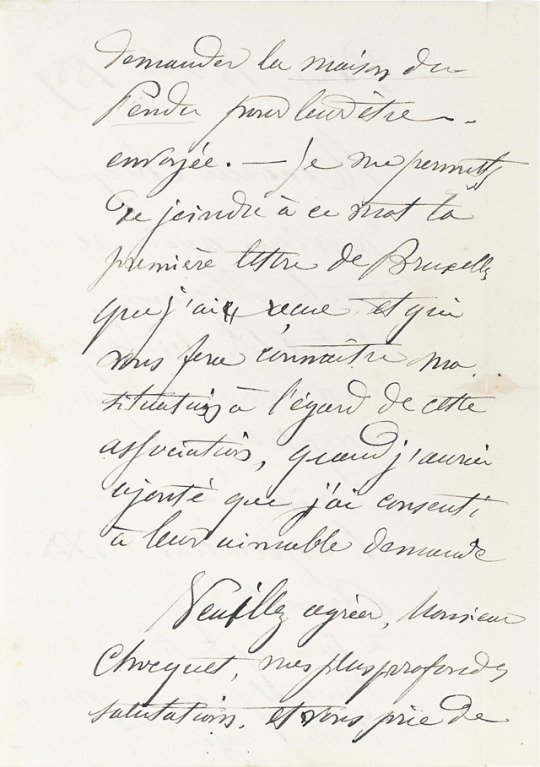 demander la maison du
Pendu pour leur être
envoyée. — Je me permets
de joindre à ce mot la
première lettre de Bruxelles
que j'ai reçue et qui
vous fera connaître ma
situation à l'égard de cette
association, quand j'aurai
ajouté que j'ai consenti
à leur aimable demande
Veuillez agréer, Monsieur
Chocquet, mes plus profondes
salutations, et vous prie de